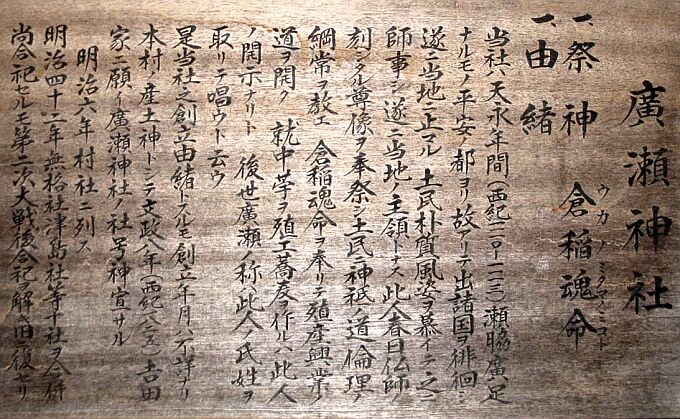 廣瀬神社
一、祭神 倉稲魂命
ウカノミタマノミコト
一、由緒
当社ハ天永年間(西紀一一一〇-一一一三)瀬脇廣足
ナルモノ平安ノ都ヨリ故アリテ出諸国ヲ徘徊シ
遂ニ当地ニ止マル 土民朴質風姿ヲ慕イテ之ニ
師事シ遂ニ当地ノ主領トナス 此人春日仏師ノ
刻シタル尊像ヲ奉祭シ土民ニ神祇ノ道倫理ノ
綱常ヲ教エ 倉稲魂命ヲ奉リテ殖産興業ノ
道ヲ開ク 就中苧ヲ殖エ蕎麦ヲ作ルハ此人
ノ開示ナリト 後世廣瀬ノ称此人ノ氏姓ヲ
取リテ唱ウト云ウ
是当社之創立由緒トスルモ創立年月ハ不詳ナリ
本村ノ産土神トシテ文政八年(西紀一八二五)吉田
家ニ願イ廣瀬神社ノ社号神宣サル
明治六年 村社ニ列ス
明治四十二年無格社津島社等十社ヲ合併
尚合祀セルモ第二次大戦後合祀ヲ解キ旧ニ復セリ